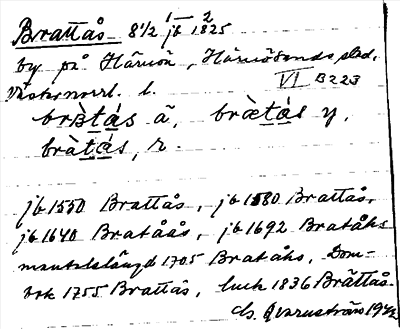 1 – 2
Brattås 8 1/2 jb 1825
by på Härnön, Härnösands stad,
VI B 223
Västernorrl. l.
bràtás ä, bræ̀tás y,
bràtás, r.
jb 1550 Brattås, jb 1580 Brattås,
jb 1640 Bratåås, jb 1692 Bratåhs
mantalslängd 1705 Bratåhs, Dom-
bok 1755 Brattås, luck 1836 Brättås.
Qvarnström 1942